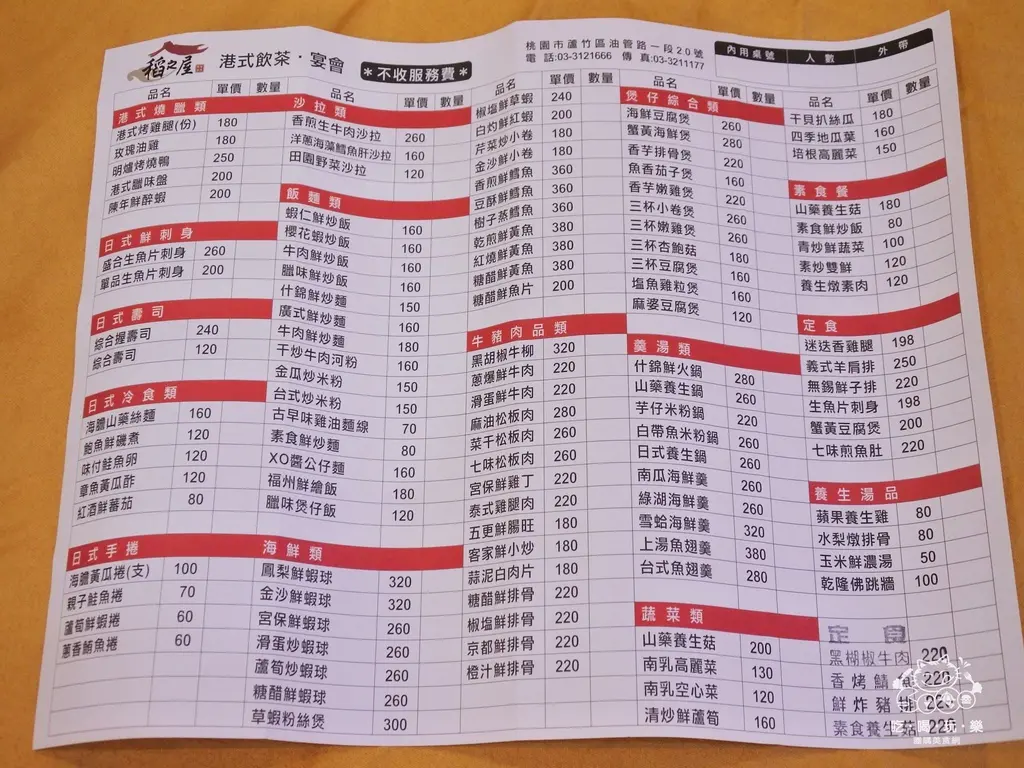 稻之屋 港式飲茶・宴會 *不收服務費*
桃園市蘆竹區油管路一段20號
電話:03-3121666 傳真:03-3211177
內用桌號 人數 外帶
品名 單價 數量
港式燒臘類
港式烤雞腿(份) 180
玫瑰油雞 180
明爐烤燒鴨 250
港式臘味盤 200
陳年鮮醉蝦 200
日式鮮刺身
盛合生魚片刺身 260
單品生魚片刺身 200
日式壽司
綜合握壽司 240
綜合壽司 120
日式冷食類
海膽山藥絲麵 160
鮑魚鮮磯煮 120
味付鮭魚卵 120
章魚黃瓜酢 120
紅酒鮮蕃茄 80
日式手捲
海膽黃瓜捲(支) 100
親子鮭魚捲 70
蘆筍鮮蝦捲 60
蔥香鮪魚捲 60
品名 單價 數量
沙拉類
香煎生牛肉沙拉 260
洋蔥海藻鱈魚肝沙拉 160
田園野菜沙拉 120
飯麵類
蝦仁鮮炒飯 160
櫻花蝦炒飯 160
牛肉鮮炒飯 160
臘味鮮炒飯 160
什錦鮮炒麵 150
廣式鮮炒麵 160
牛肉鮮炒麵 180
干炒牛肉河粉 160
金瓜炒米粉 150
台式炒米粉 150
古早味雞油麵線 70
素食鮮炒麵 80
XO醬公仔麵 160
福州鮮繪飯 180
臘味煲仔飯 120
海鮮類
鳳梨鮮蝦球 320
金沙鮮蝦球 320
宮保鮮蝦球 260
滑蛋炒蝦球 260
蘆筍炒蝦球 260
糖醋鮮蝦球 260
草蝦粉絲煲 300
品名 單價 數量
椒塩鮮草蝦 240
白灼鮮紅蝦 200
芹菜炒小卷 180
金沙鮮小卷 180
香煎鮮鱈魚 360
豆酥鮮鱈魚 360
樹子蒸鱈魚 360
乾煎鮮黃魚 380
紅燒鮮黃魚 380
糖醋鮮黃魚 380
糖醋鮮魚片 200
牛豬肉品類
黑胡椒牛柳 320
蔥爆鮮牛肉 220
滑蛋鮮牛肉 220
麻油松板肉 280
菜干松板肉 260
七味松板肉 260
宮保鮮雞丁 220
泰式雞腿肉 220
五更鮮腸旺 180
客家鮮小炒 180
蒜泥白肉片 180
糖醋鮮排骨 220
椒塩鮮排骨 220
京都鮮排骨 220
橙汁鮮排骨 220
品名 單價 數量
煲仔綜合類
海鮮豆腐煲 260
蟹黃海鮮煲 280
香芋排骨煲 220
魚香茄子煲 160
香芋嫩雞煲 220
三杯小卷煲 260
三杯嫩雞煲 260
三杯杏鮑菇 180
三杯豆腐煲 160
塩魚雞粒煲 160
麻婆豆腐煲 120
羹湯類
什錦鮮火鍋 280
山藥養生鍋 260
芋仔米粉鍋 220
白帶魚米粉鍋 260
日式養生鍋 260
南瓜海鮮羹 260
綠湖海鮮羹 260
雪蛤海鮮羹 320
上湯魚翅羹 380
台式魚翅羹 280
蔬菜類
山藥養生菇 200
南乳高麗菜 130
南乳空心菜 120
清炒鮮蘆筍 160
品名 單價 數量
干貝扒絲瓜 180
四季地瓜葉 160
培根高麗菜 150
素食餐
山藥養生菇 180
素食鮮炒飯 80
青炒鮮蔬菜 100
素炒雙鮮 120
養生燉素肉 120
定食
迷迭香雞腿 198
義式羊肩排 250
無錫鮮子排 220
生魚片刺身 198
蟹黃豆腐煲 200
七味煎魚肚 220
養生湯品
蘋果養生雞 80
水梨燉排骨 80
玉米鮮濃湯 50
乾隆佛跳牆 100
定食
黑楜椒牛肉 220
香烤鯖 220
鮮炸豬排
素食養生菇 220
吃・喝・玩・樂
團購美食網